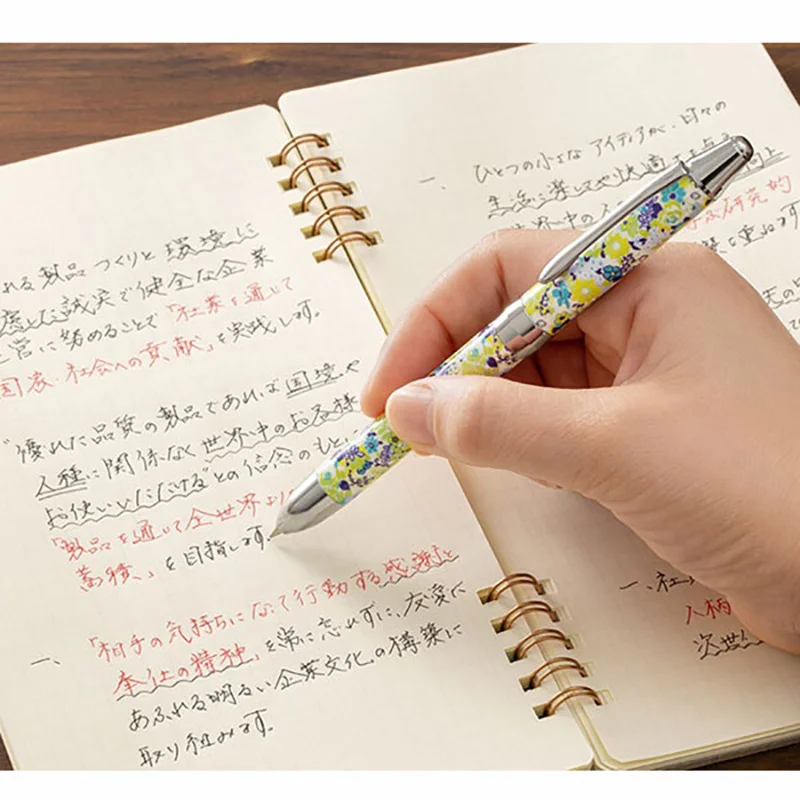 れる製品づくりと環境に
慮した誠実で健全な企業
営に努めることで「社業を通じて
国家・社会への貢献」を実践します。
"優れた品質の製品であれば国境や
人種に関係なく世界中のお客様
お使いいただける"との信念のもとに
「製品を通じて全世界
蓄積」を目指します。
一、「相手の気持ちになって行動する感謝と
奉仕の精神」を常に忘れずに、友愛に
あふれる明るい企業文化の構築に
取り組みます。
一、ひとつの小さなアイディアが、日々の
生活に楽しさや快適
世界中の
研究的
を重ねます
一、社
人柄
次世